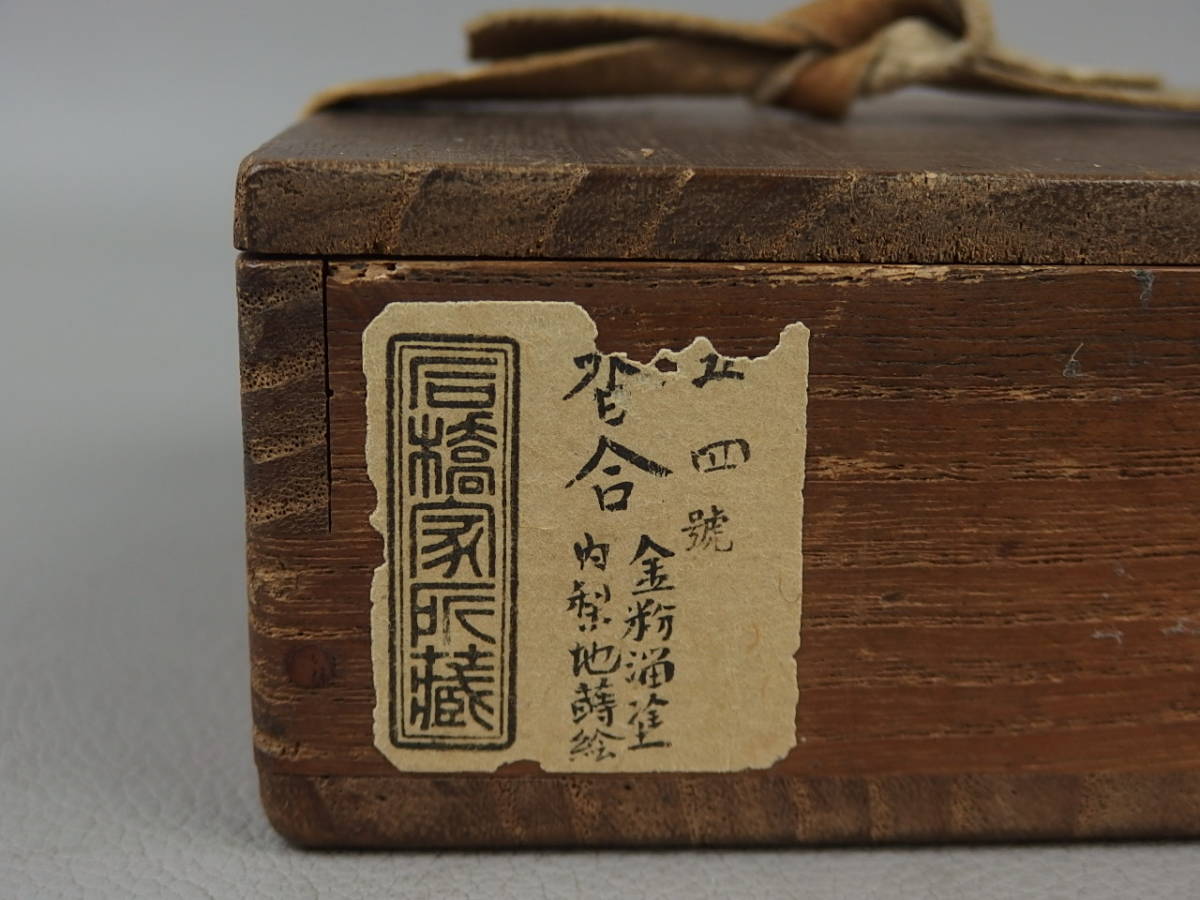 四號
香合
金粉溜塗
内梨地蒔絵
石橋家所藏